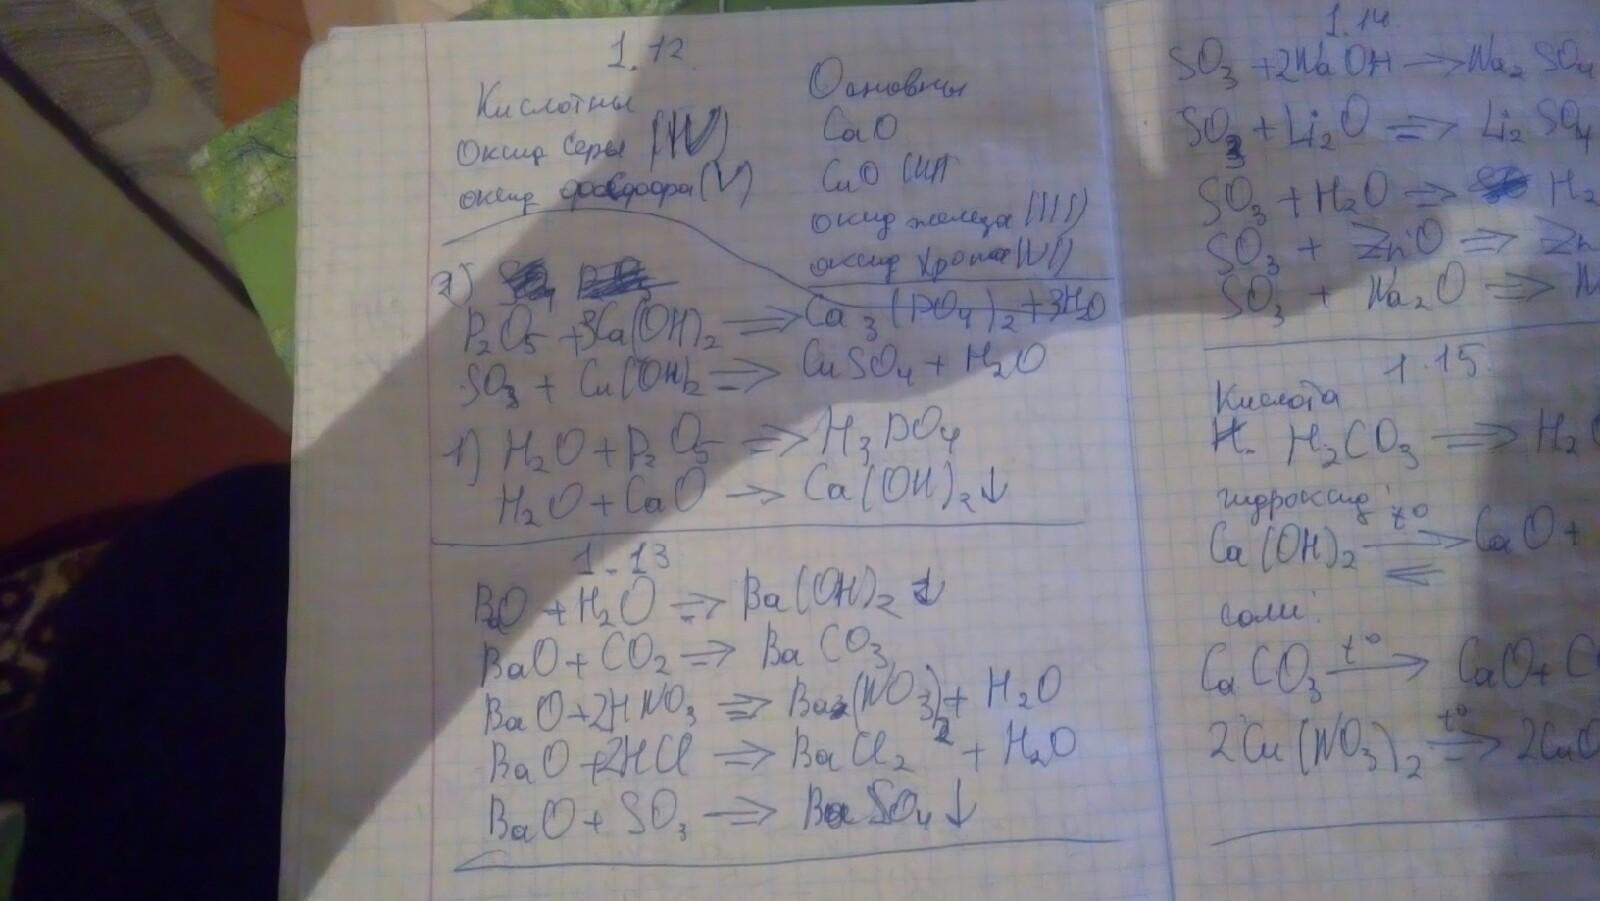 1.12
Кислотны
Основны
Оксид серы (IV)
CaO
оксид фосфора (V)
CuO (II)
оксид железа (III)
оксид хрома (VI)
2)
P₂O₅ + 3Ca(OH)₂ ⇒ Ca₃(PO₄)₂ + 3H₂O
SO₃ + Cu(OH)₂ ⇒ CuSO₄ + H₂O
1) H₂O + P₂O₅ ⇒ H₃PO₄
H₂O + CaO → Ca(OH)₂↓
1.13
BaO + H₂O ⇒ Ba(OH)₂↓
BaO + CO₂ ⇒ BaCO₃
BaO + 2HNO₃ ⇒ Ba(NO₃)₂ + H₂O
BaO + 2HCl ⇒ BaCl₂ + H₂O
BaO + SO₃ ⇒ BaSO₄↓
1.14
SO₃ + 2NaOH → Na₂SO₄
SO₃ + Li₂O ⇒ Li₂SO₄
SO₃ + H₂O ⇒ H₂
SO₃ + ZnO ⇒ Zn
SO₃ + Na₂O ⇒ N
1.15.
Кислота
H₂CO₃ ⇒ H₂O
гидроксид:
Ca(OH)₂ t° ⇄ CaO +
соли:
CaCO₃ t° → CaO + C
2Cu(NO₃)₂ t° ⇒ 2CuO